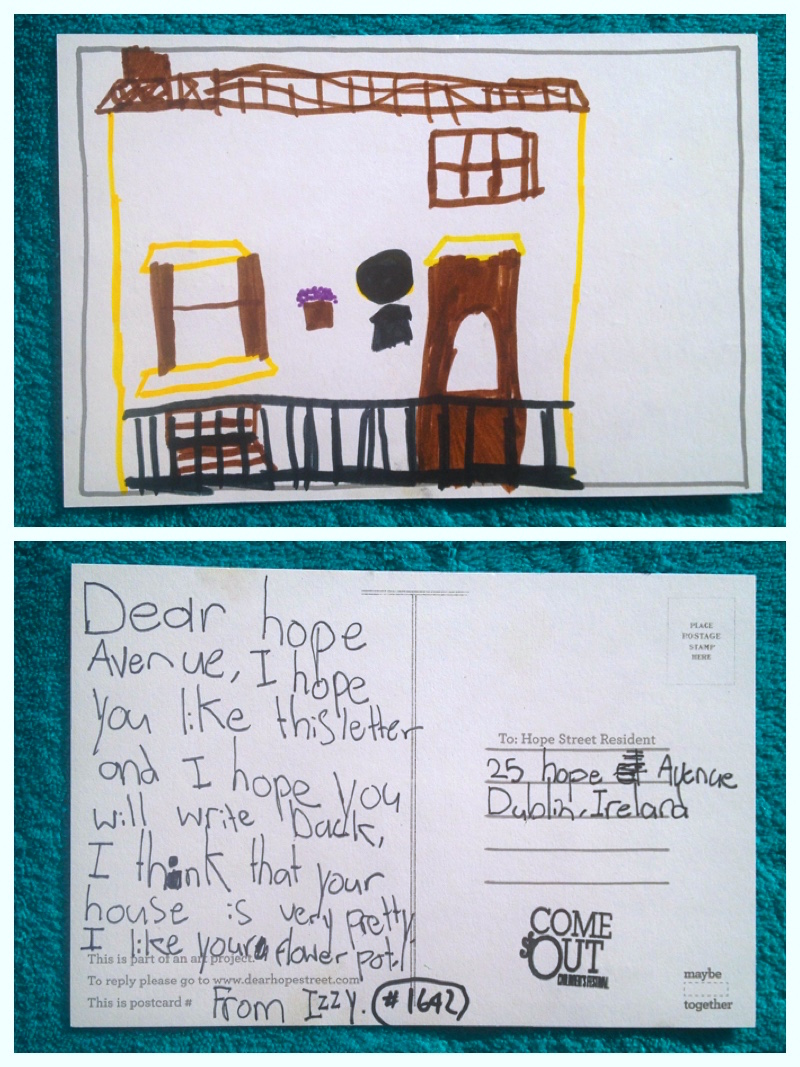 Dear hope
Avenue, I hope
you like this letter
and I hope you
will write back,
I think that your
house is very pretty
I like your flower pot!
This is part of an art project.
To reply please go to www.dearhopestreet.com
This is postcard #
From Izzy. #1642
PLACE
POSTAGE
STAMP
HERE
To: Hope Street Resident
25 hope Avenue
Dublin, Ireland
COME
OUT
CHILDREN'S FESTIVAL
maybe
together